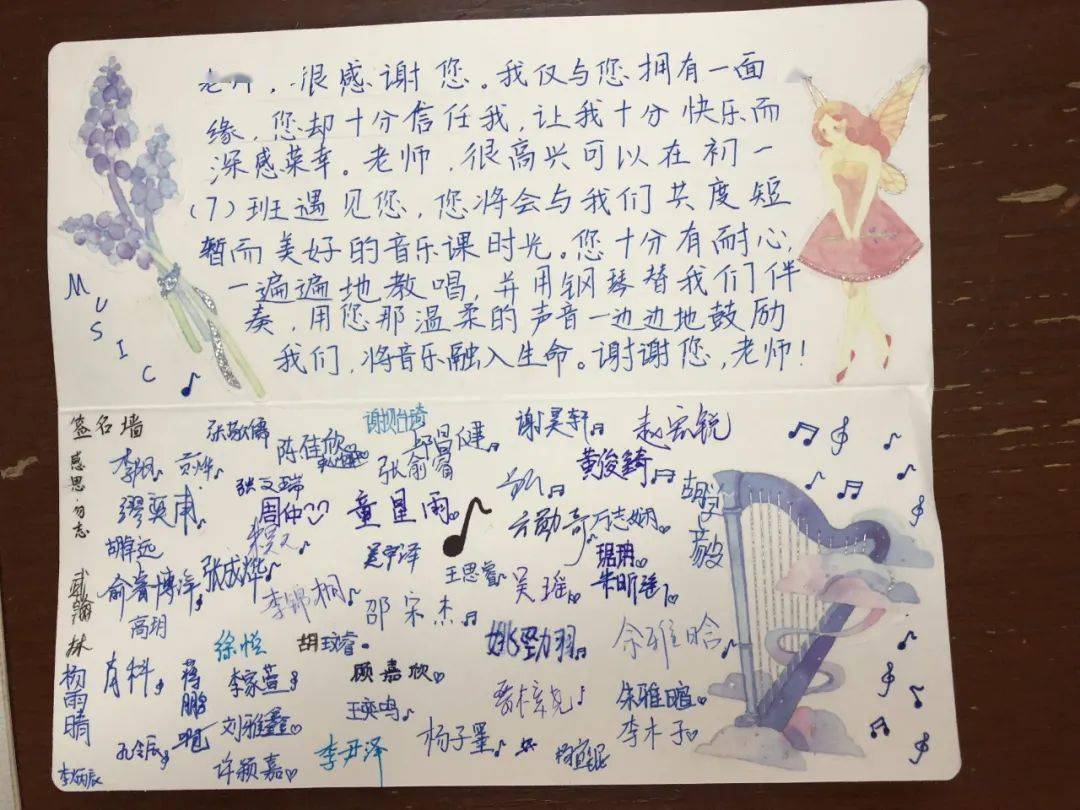 老师,很感谢您。我仅与您拥有一面
缘,您却十分信任我,让我十分快乐而
深感荣幸。老师,很高兴可以在初一
(7)班遇见您,您将会与我们共度短
暂而美好的音乐课时光。您十分有耐心,
一遍遍地教唱,并用钢琴替我们伴
奏,用您那温柔的声音一边边地鼓励
我们,将音乐融入生命。谢谢您,老师!
MUSIC
签名墙
感恩·勿忘
张敬儒
陈佳欣
谢贻琦
邱昱健
谢昊轩
赵宏锐
张俞睿
黄俊錡
缪奕甫
张文瑞
周仲
童星雨
方勋奇
万志娴
胡卓远
吴宇泽
王思睿
吴瑶
琚玥
朱昕瑶
俞睿博洋
张成烨
李锦桐
邵宗杰
高玥
徐悦
胡玟睿
姚勁羽
余雅晗
杨雨晴
肖科
蒋鹏
李家萱
顾嘉欣
朱雅暄
刘雅鑫
王奕鸣
杨子墨
李木子
孔令辰
许颖嘉
李尹泽
李炳辰